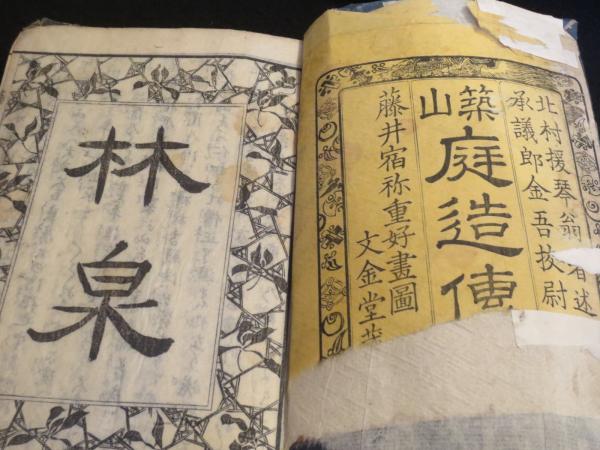 北村援琴翁著述
承議郎金吾校尉
築山庭造傳
藤井宿祢重好畫圖
文金堂
林泉